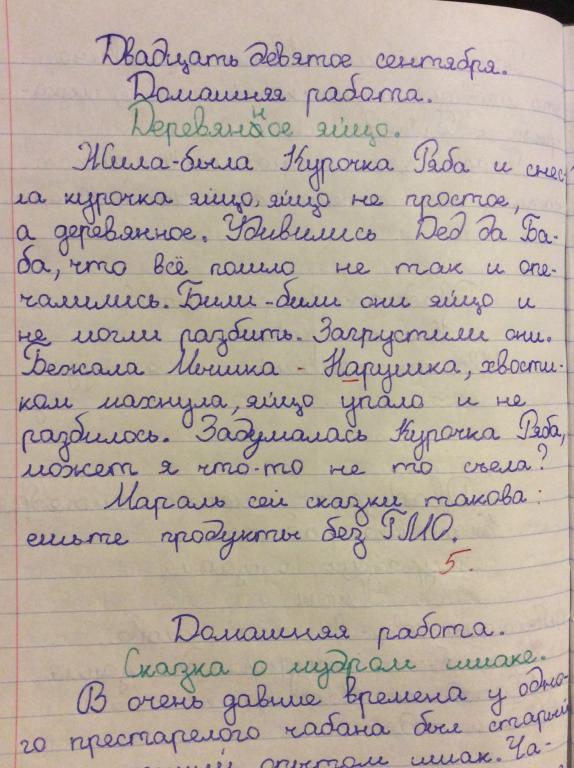 Двадцать девятое сентября.
Домашняя работа.
Деревянное яйцо.
Жила-была Курочка Ряба и снес-
ла курочка яйцо, яйцо не простое,
а деревянное. Удивились Дед да Ба-
ба, что всё пошло не так и опе-
чалились. Били-били они яйцо и
не могли разбить. Загрустили они.
Бежала Мышка - Нарушка, хвости-
ком махнула, яйцо упало и не
разбилось. Задумалась Курочка Ряба,
может я что-то не то съела?
Мараль сей сказки такова:
ешьте продукты без ГМО.
5.
Домашняя работа.
Сказка о мудром ишаке.
В очень давние времена у одно-
го престарелого чабана был старый
опытом ишак. Ча-